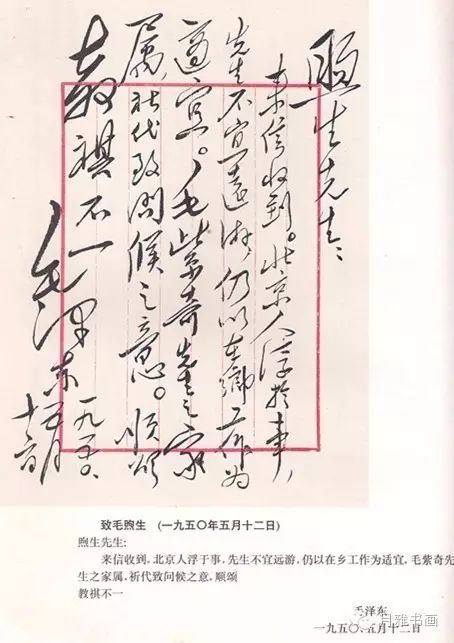 煦生先生：
来信收到。北京人浮于事，
先生不宜远游，仍以在乡工作为
适宜。毛紫奇先生之家
属，祈代致问候之意。顺颂
教祺不一
毛泽东
一九五〇、
五月
十二日
致毛煦生 (一九五〇年五月十二日)
煦生先生:
来信收到。北京人浮于事，先生不宜远游，仍以在乡工作为适宜。毛紫奇先
生之家属，祈代致问候之意。顺颂
教祺不一
毛泽东
一九五〇、五月十二日
月雅书画